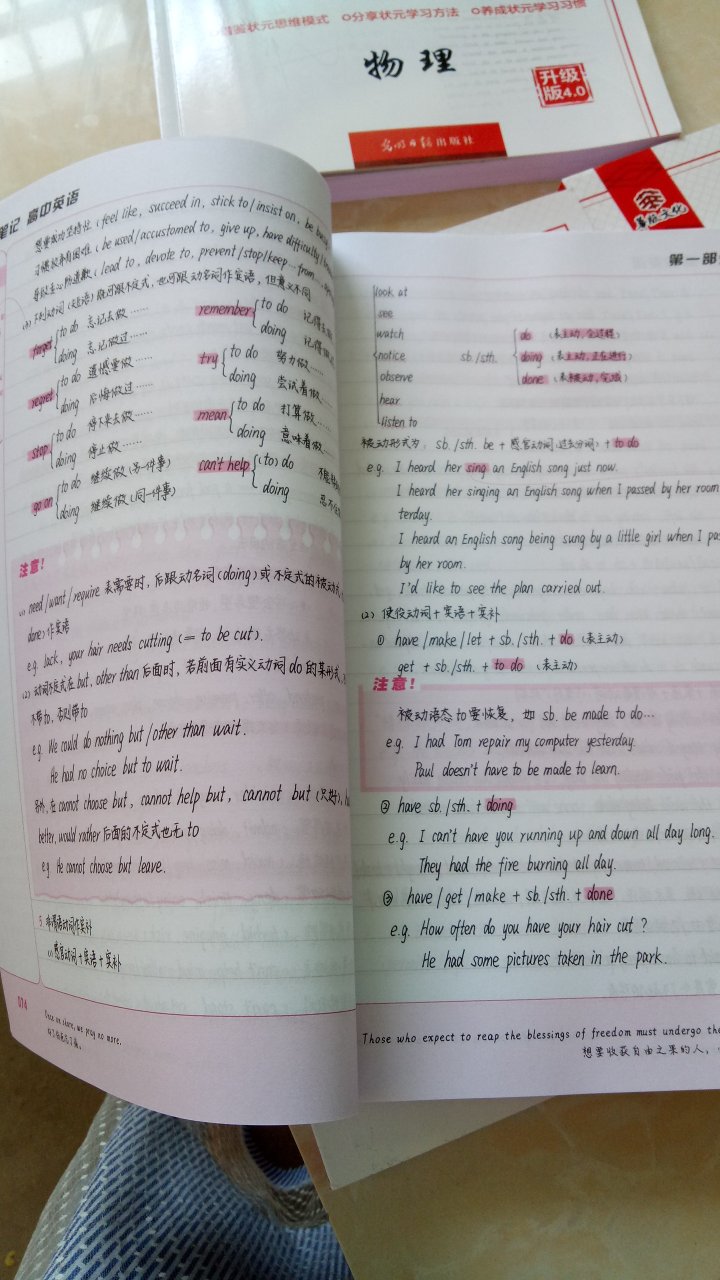 借鉴状元思维模式 分享状元学习方法 养成状元学习习惯
物理
升级
版4.0
光明日报出版社
笔记 高中英语
想重成功坚持住 (feel like, succeed in, stick to/insist on, be busy
习惯放弃有困难 (be used/accustomed to, give up, have difficulty
(lead to, devote to, prevent/stop/keep...from
下列动词(短语)既可跟不定式,也可跟动名词作宾语,但意义不同
forget
to do 忘记去做……
doing 忘记做过……
regret
to do 遗憾要做……
doing 后悔做过……
stop
to do 停下来去做……
doing 停止做……
go on
to do 继续做(另一件事)
doing 继续做(同一件事)
remember
to do 记得去
doing 记得
try
to do 努力做……
doing 尝试着做……
mean
to do 打算做……
doing 意味着做……
can't help
(to) do 不能
doing
注意!
(1) need/want/require 表需要时,后跟动名词(doing)或不定式的被动式
done)作宾语
e.g. Jack, your hair needs cutting (= to be cut).
(2) 动词不定式在but, other than后面时,若前面有实义动词do的某形式,
不带to,否则带to
e.g. We could do nothing but/other than wait.
He had no choice but to wait.
另外,在cannot choose but, cannot help but, cannot but (只好),
better, would rather后面的不定式也无to
e.g. He cannot choose but leave.
5. 非谓语动词作宾补
(1) 感官动词+宾语+宾补
074
Once on shore, we pray no more.
第一部
look at
see
watch
notice
observe
hear
listen to
sb./sth.
do (表主动,全过程)
doing (表主动,正在进行)
done (表被动,完成)
被动形式为: sb./sth. be + 感官动词(过去分词) + to do
e.g. I heard her sing an English song just now.
I heard her singing an English song when I passed by her room
terday.
I heard an English song being sung by a little girl when I pa
by her room.
I'd like to see the plan carried out.
(2) 使役动词+宾语+宾补
① have/make/let + sb./sth. + do (表主动)
get + sb./sth. + to do (表主动)
注意!
被动语态to要恢复,如 sb. be made to do...
e.g. I had Tom repair my computer yesterday.
Paul doesn't have to be made to learn.
② have sb./sth. + doing
e.g. I can't have you running up and down all day long.
They had the fire burning all day.
③ have/get/make + sb./sth. + done
e.g. How often do you have your hair cut?
He had some pictures taken in the park.
Those who expect to reap the blessings of freedom must undergo the
想要收获自由之果的人,